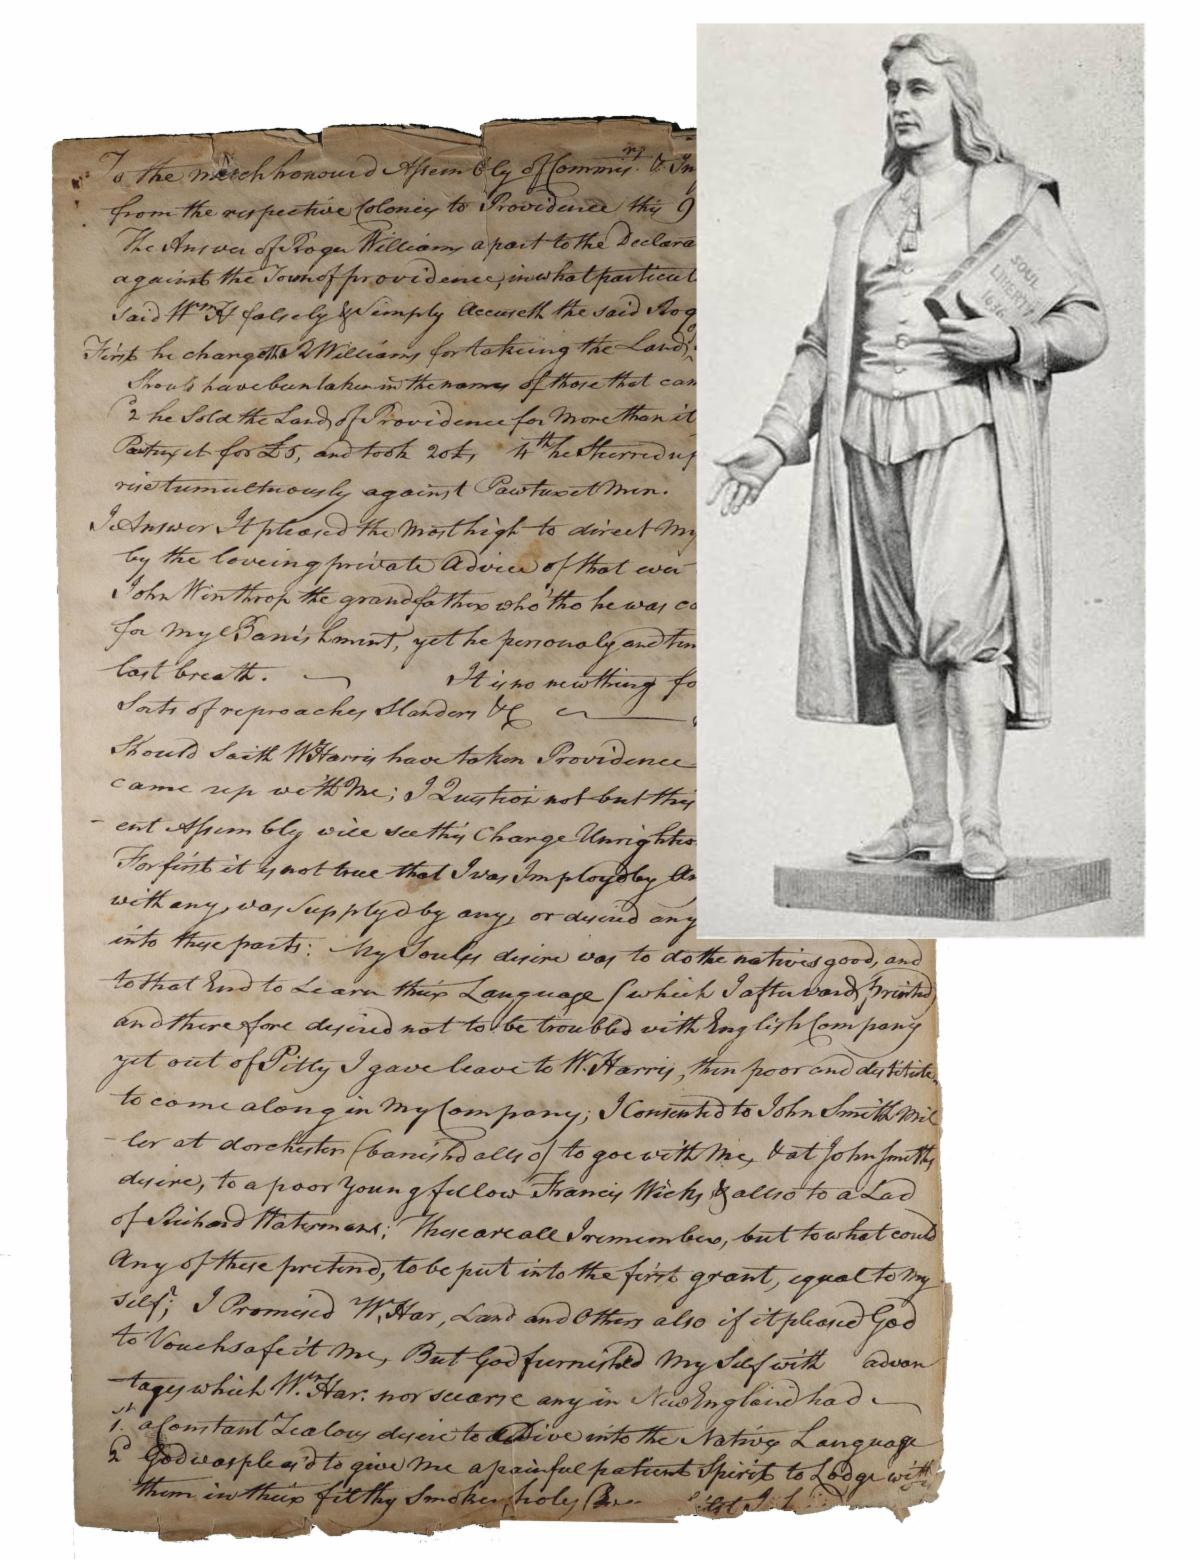 To the mutch honoured Assembly of Commis.rs & In
from the respective Colonies to Providence this 9
The Answer of Roger Williams apart to the Declara
against the Town of providence, in what particul
said Wm H falsely & Simply Accuseth the said Rog
First he chargeth R Williams for takeing the Lands,
Shouls have been taken in the names of those that cam
2 he Sold the Land of Providence for More than it
Patuxet for £5, and took 20£, 4th he Sturred up
rise tumultuously against Pawtuxet Men.
I Answer It pleased the Most high to direct My
by the loveing private Advice of that ever
John Winthrop the grandfather who tho he was ca
for my Banishment, yet he personaly and ten
last breath. It is no new thing fo
Sorts of reproaches Slanders &c
Should saith W Harris have taken Providence
came up with Me; I Question not but this
ent Assembly will see this Charge Unrighteo
For first it is not true that I was Imployd by An
with any, was Supplyd by any, or desired any
into these parts: My Souls desire was to do the natives good, and
to that End to Learn their Language (which I afterward Printed)
and therefore desired not to be troubled with English Company
yet out of Pitty I gave leave to W. Harris, then poor and destitute
to come along in My Company; I Consented to John Smith Mil
-ler at dorchester (banishd allso) to goe with Me, & at John Smiths
desire, to a poor Young fellow Francis Wicks & allso to a Lad
of Richard Watermans; These are all I remember, but to what could
Any of these pretend, to be put into the first grant, equal to My
Self; I Promised W. Har, Land and Others also if it pleased God
to Vouchsafe it Me, But God furnished My Self with advan
tages which Wm Har: nor scarse any in New England had
1.st a Constant Zealous desire to Dive into the Natives Language
2d God was pleas'd to give Me a painful patient Spirit to Lodge with
them in their filthy Smokey holes
SOUL
LIBERTY
1636